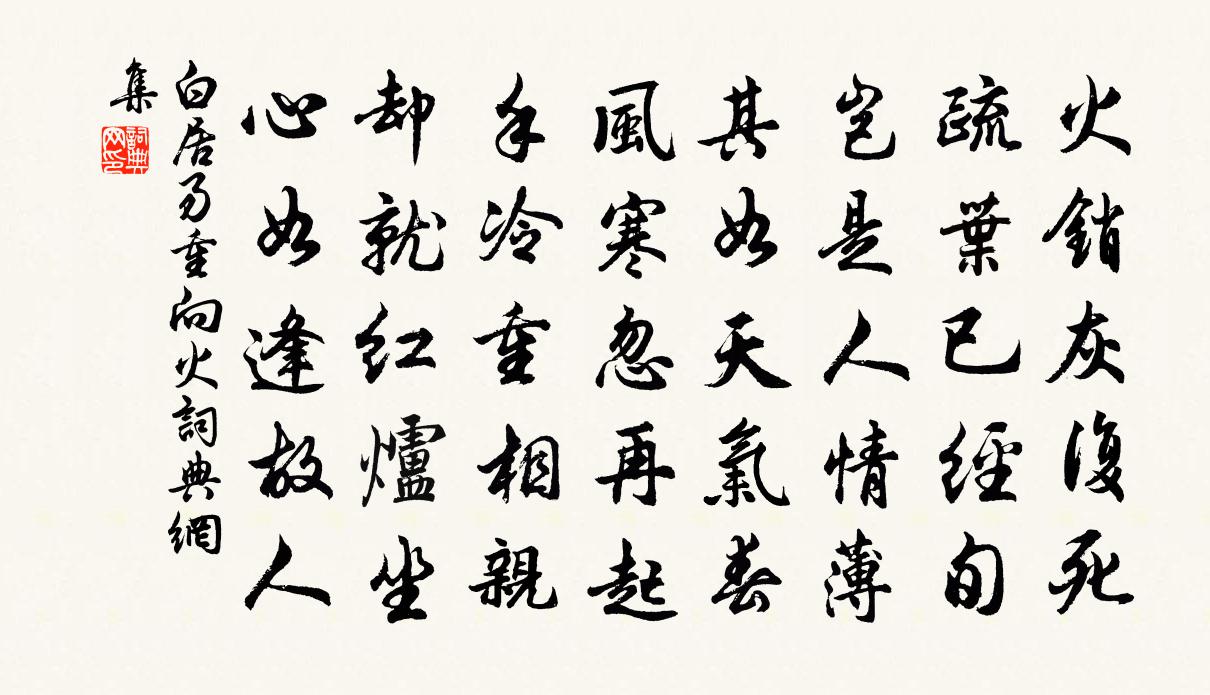 火銷灰復死
疏葉已經旬
豈是人情薄
其如天氣春
風寒忽再起
手冷重相親
却就紅爐坐
心如逢故人
白居易重向火詞典網
集
詞典网印